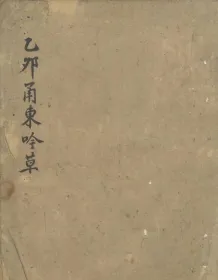 乙卯甬東吟草